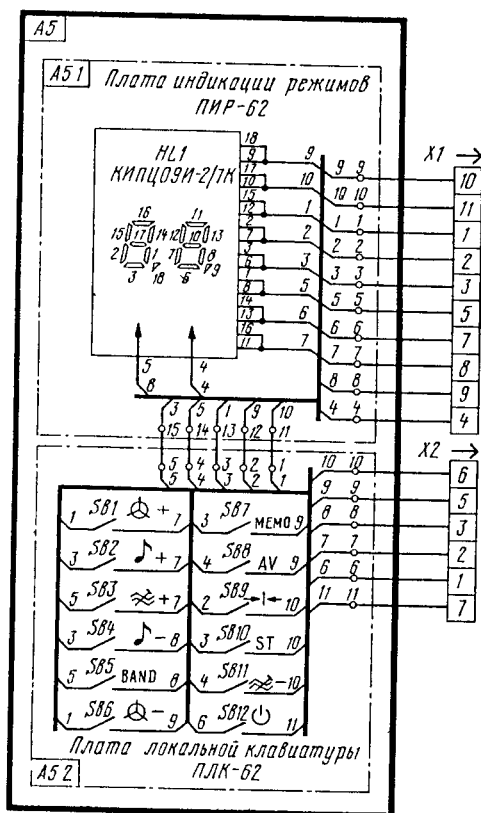 A5
A5.1 Плата индикации режимов
ПИР-62
HL1
КИПЦ09И-2/7К
16 11
15 17 14 12 10 13
2 1 7 8
3 18 6 9
18
9 9 9 9
17
10 10 10 10
15
12 1 1 1
2
7 2 2 2
3
6 3 3 3
1
8 5 5 5
14
13 6 6 6
16
11 7 7 7
8 8 8
4 4 4
5 4
8 4
X1 →
10
11
1
2
3
5
7
8
9
4
3 5 1 9 10
15 14 13 12 11
5 4 3 2 1
5 4 3 2 1
X2 →
10 10 10 6
9 9 9 5
8 8 8 3
7 7 7 2
6 6 6 1
11 11 11 7
1 SB1 + 7
3 SB2 + 7
5 SB3 + 7
3 SB4 - 8
5 SB5 BAND 8
1 SB6 - 9
3 SB7 MEMO 9
4 SB8 AV 9
2 SB9 10
3 SB10 ST 10
4 SB11 - 10
6 SB12 11
Плата локальной клавиатуры
ПЛК-62
A5.2